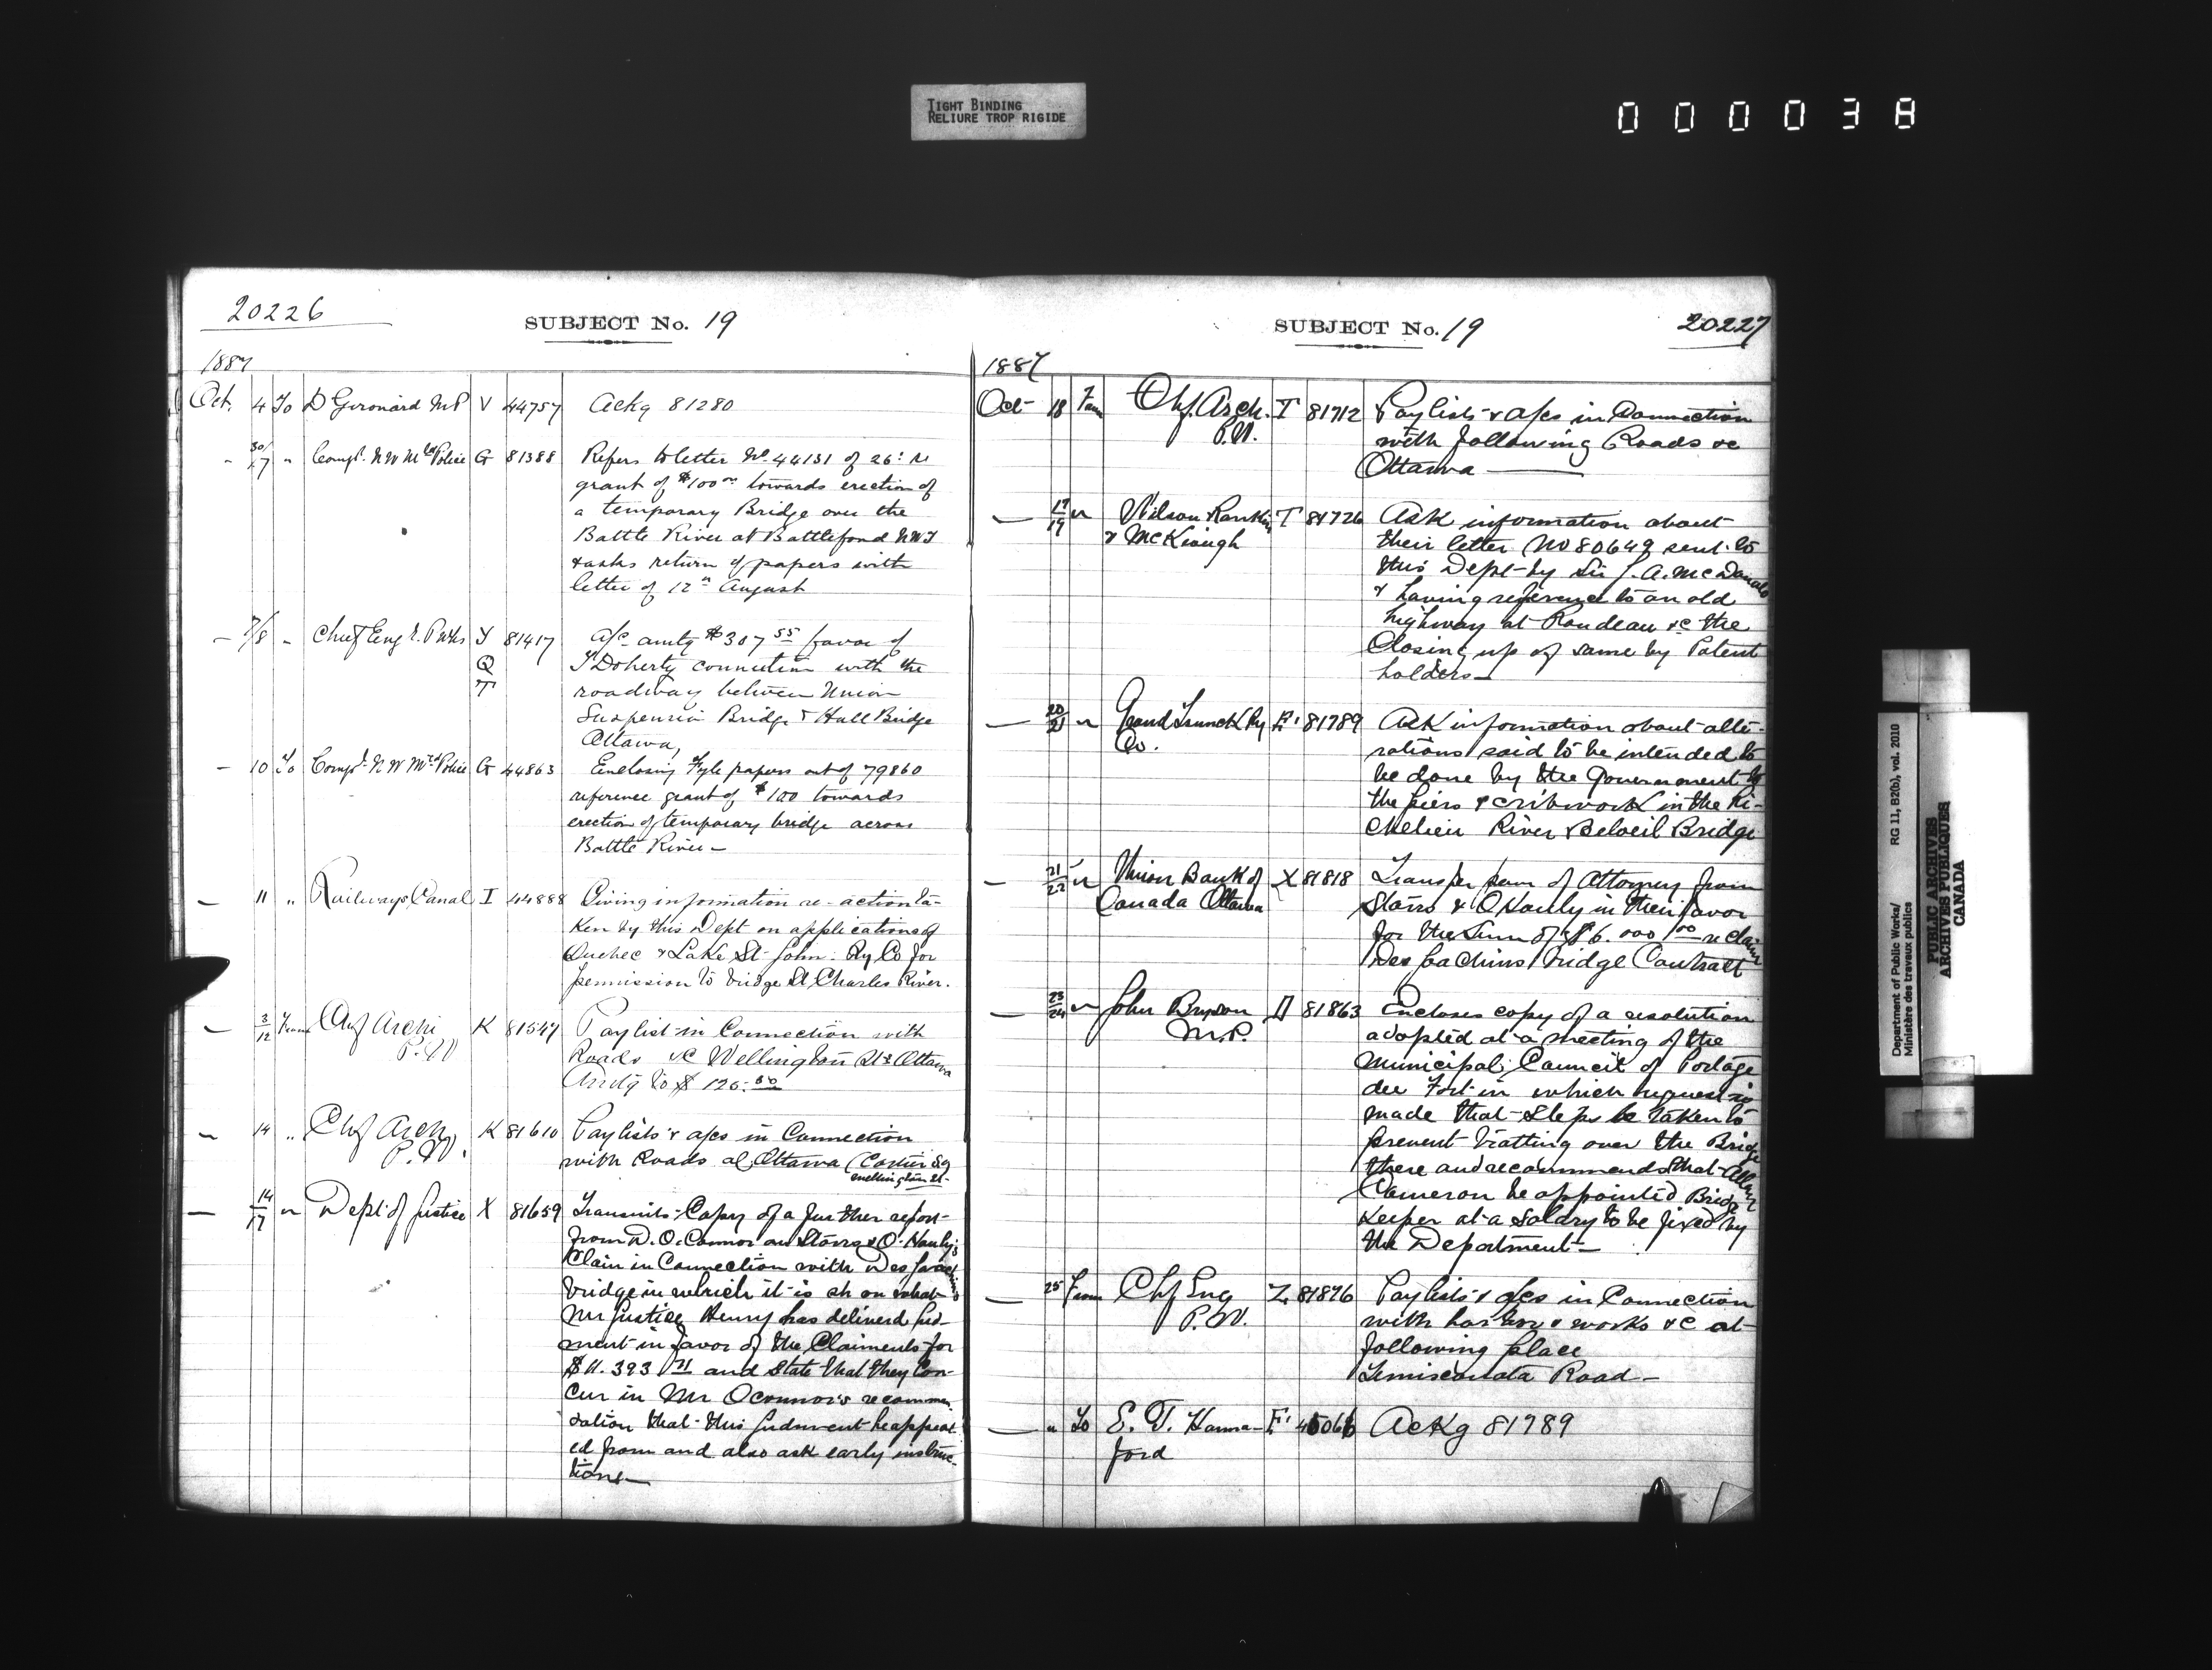 TIGHT BINDING
RELIURE TROP RIGIDE
000038
20226
SUBJECT No. 19
1887
Oct. 4 To D Girouard M P V 44757 Ackg 81280
- 30/7 " Compt. N W Mtd Police G 81388 Refers to letter No. 44131 of 26: re
grant of $100 00 towards erection of
a temporary Bridge over the
Battle River at Battleford NWT
& asks return of papers with
letter of 12th August
- 7/8 " Chief Engr. P Wks Y 81417 a/c amtg $307 55 favor of
Q T Doherty connection with the
T roadway between Union
Suspension Bridge & Hull Bridge
Ottawa,
- 10 To Compt. N W Mtd Police G 44863 Enclosing Fyle papers out of 79860
reference grant of $100 towards
erection of temporary bridge across
Battle River -
- 11 " Railways Canal I 44888 Giving information re- action ta-
ken by this Dept on application of
Quebec & Lake St John. Ry Co for
permission to bridge St Charles River.
- 3/12 From Chf Archi K 81547 Paylist in Connection with
P.W Roads &c Wellington St Ottawa
Amtg to $ 126.
- 14 " Chf Arch K 81610 Paylists & a/cs in Connection
P.W. with Roads at Ottawa (Cartier Sq
Wellington St-
- 14/17 " Dept of Justice X 81659 Transmits Copy of a further report
from D. O. Connor on Starrs & O. Hanly's
Claim in Connection with Des Joachims
bridge in which it is sh on what
Mr Justice Henry has deliverd Jud-
ment in favor of the Claiments for
$11.393 71 and state that they Con-
cur in Mr Oconnor's recommen
dation that this Judment be appeal
ed from and also ask early instruc-
tions
SUBJECT No. 19
20227
1887
Oct 18 From Chf. Arch. T 81712 Paylists & a/cs in Connection
P.W. with following Roads &c
Ottawa
- 17/19 " Wilson Rankin T 81726 Ask information about
& McKeough their letter No 80649 sent to
this Dept by Sir J. A. McDonald
& having reference to an old
highway at Rondeau &c the
Closing up of same by Patent
holders
- 20/21 " Grand Trunck Ry E' 81789 Ask information about alte-
Co. rations said to be intended to
be done by the Government to
the piers & cribwork in the Ri-
chelieu River Beloeil Bridge
- 21/22 " Union Bank of X 81818 Transfer powr of Attorney from
Canada Ottawa Starrs & O Hanly in their favor
for the Sum of $6.000 00 re claim
Des Joachims bridge Contract
- 23/24 " John Bryson 81863 Encloses copy of a resolution
M.P. adopted at a meeting of the
Municipal Council of Portage
du Fort in which request is
made that steps be taken to
prevent trotting over the Bridge
there and recommends that
Cameron be appointed Bridge
Keeper at a salary to be fixed by
the Department
- 25 From Chf Eng Z 81876 Paylists & a/cs in Connection
P.W. with harbor & works &c at
following place
Temiscouata Road -
- " To E. T. Hanna- E' 45066 Ackg 81789
ford
Department of Public Works/ RG 11, B2(b), vol. 2010
Ministère des travaux publics
PUBLIC ARCHIVES
ARCHIVES PUBLIQUES
CANADA